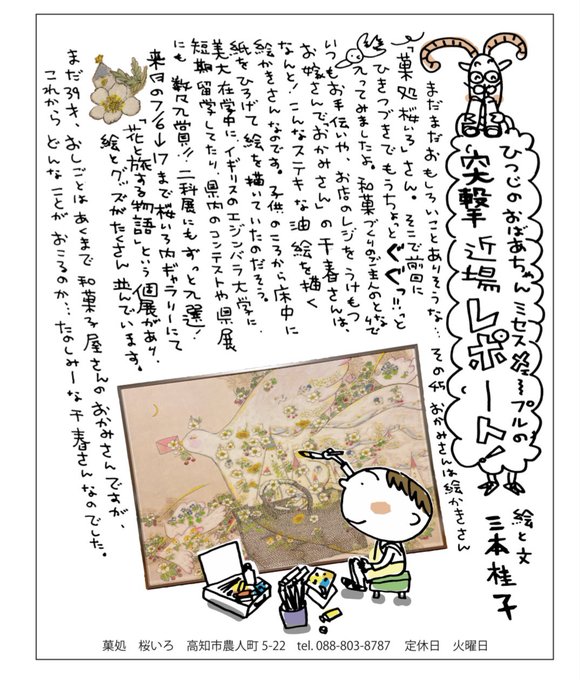 ひつじのおばあちゃん ミセスメェープルの
突撃 近場レポート!
絵と文 三本桂子
まだまだおもしろいことありそうな… その45 おかみさんは絵かきさん
「菓処 桜いろ」さん。そこで前回に
ひきつづきでもうちょっとぐぐっ!!っと
入ってみましたよ。和菓子づくりのご主人のとなりで
いつもお手伝いや、お店のレジをうけもつ
お嫁さんで"おかみさん"の千春さんは、
なんと!こんなステキな油絵を描く
絵かきさんなのです。子供のころから床中に
紙をひろげて絵を描いていたのだそう。
美大在学中にイギリスのエジンバラ大学に
短期留学してたり、県内のコンテストや県展
にも数々入賞!!二科展にもずっと入選!
来月の7/6→17まで桜いろ内ギャラリーにて
「花と旅する物語」という個展があり、
絵とグッズがたくさん並んでいます。
まだ39才、おしごとはあくまで和菓子屋さんのおかみさんですが、
これからどんなことがおこるのか…たのしみーな千春さんなのでした。
菓処 桜いろ 高知市農人町 5-22 tel. 088-803-8787 定休日 火曜日